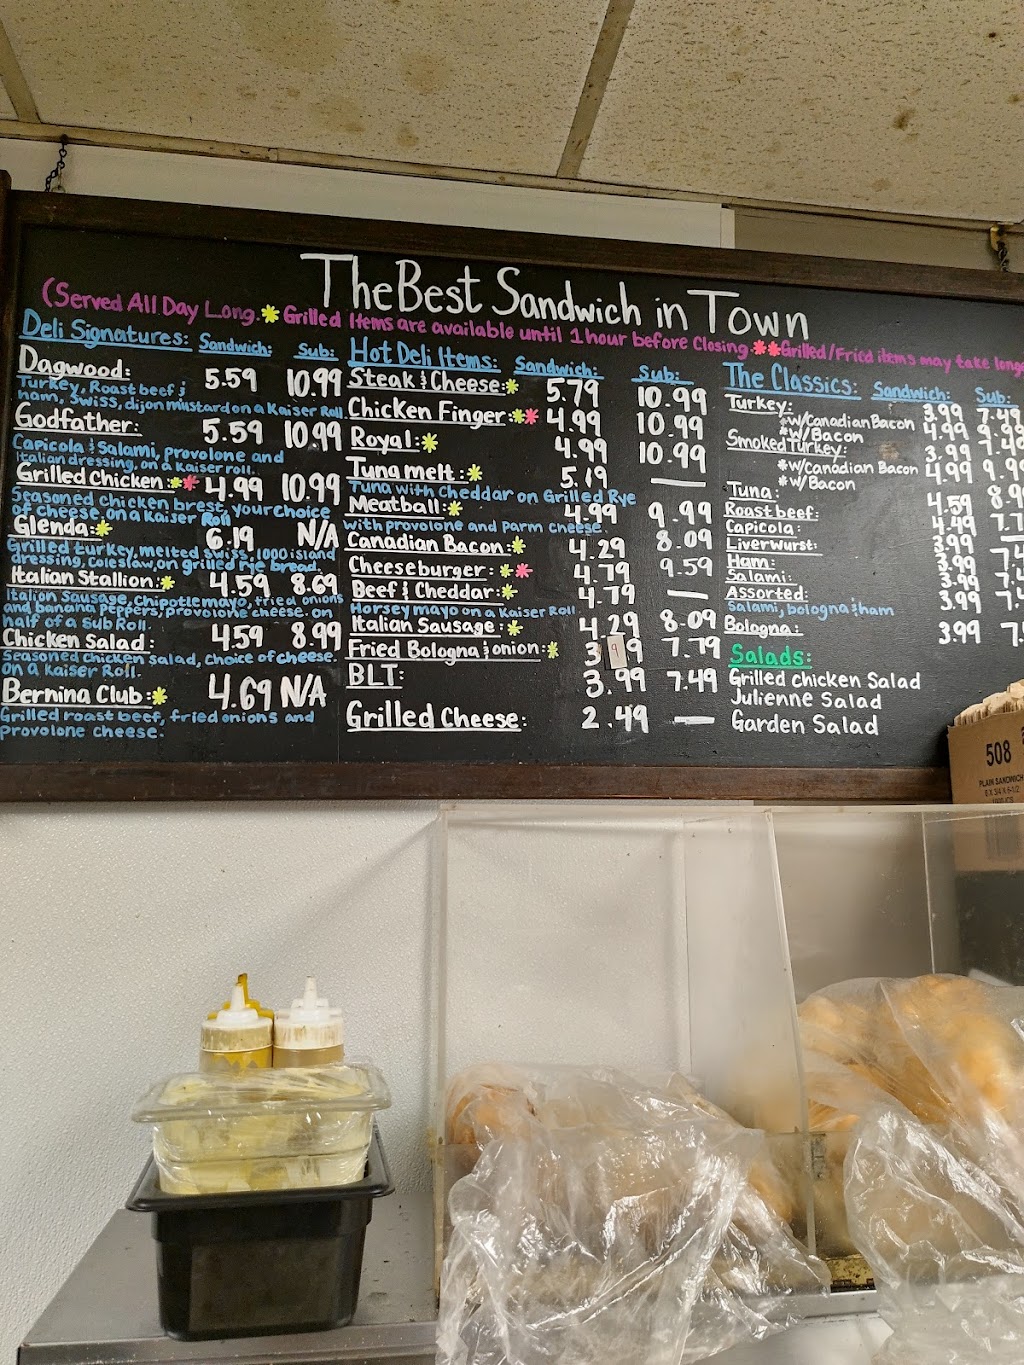 The Best Sandwich in Town
(Served All Day Long. *Grilled Items are available until 1 hour before Closing **Grilled/Fried items may take longe
Deli Signatures: Sandwich: Sub:
Dagwood: 5.59 10.99
Turkey, Roast beef ;
ham, Swiss, dijon mustard on a Kaiser Roll
Godfather: 5.59 10.99
Capicola & Salami, provolone and
Italian dressing, on a Kaiser roll.
Grilled Chicken:** 4.99 10.99
Seasoned chicken brest, your choice
of cheese on a Kaiser Roll
Glenda:* 6.19 N/A
Grilled turkey, melted swiss, 1000 island
dressing, coleslaw, on grilled rye bread.
Italian Stallion:* 4.59 8.69
Italian Sausage, chipotle mayo, fried onions
and banana peppers, provolone cheese. on
half of a sub Roll.
Chicken Salad: 4.59 8.99
Seasoned chicken salad, choice of cheese.
on a Kaiser Roll.
Bernina Club:* 4.69 N/A
Grilled roast beef, fried onions and
provolone cheese.
Hot Deli Items: Sandwich: Sub:
Steak & Cheese:* 5.79 10.99
Chicken Finger:** 4.99 10.99
Royal:* 4.99 10.99
Tuna melt:* 5.19 —
Tuna with Cheddar on Grilled Rye
Meatball:* 4.99 9.99
with provolone and parm cheese
Canadian Bacon:* 4.29 8.09
Cheeseburger:** 4.79 9.59
Beef & Cheddar:* 4.79 —
Horsey mayo on a Kaiser Roll
Italian Sausage:* 4.29 8.09
Fried Bologna & onion:* 3.99 7.79
BLT: 3.99 7.49
Grilled Cheese: 2.49 —
The Classics: Sandwich: Sub:
Turkey: 3.99 7.49
*w/Canadian Bacon 4.99
*w/ Bacon 4.99
Smoked Turkey: 3.99 7.49
*w/Canadian Bacon 4.99 9.9
*w/Bacon
Tuna: 4.59 8.9
Roast beef: 4.49 7.7
Capicola: 3.99
Liverwurst:
Ham: 3.99
Salami: 3.99
Assorted: 3.99
Salami, bologna & ham
Bologna: 3.99
Salads:
Grilled chicken Salad
Julienne Salad
Garden Salad
508
PLAIN SANDWICH
6 X 3/4 X 6-1/2